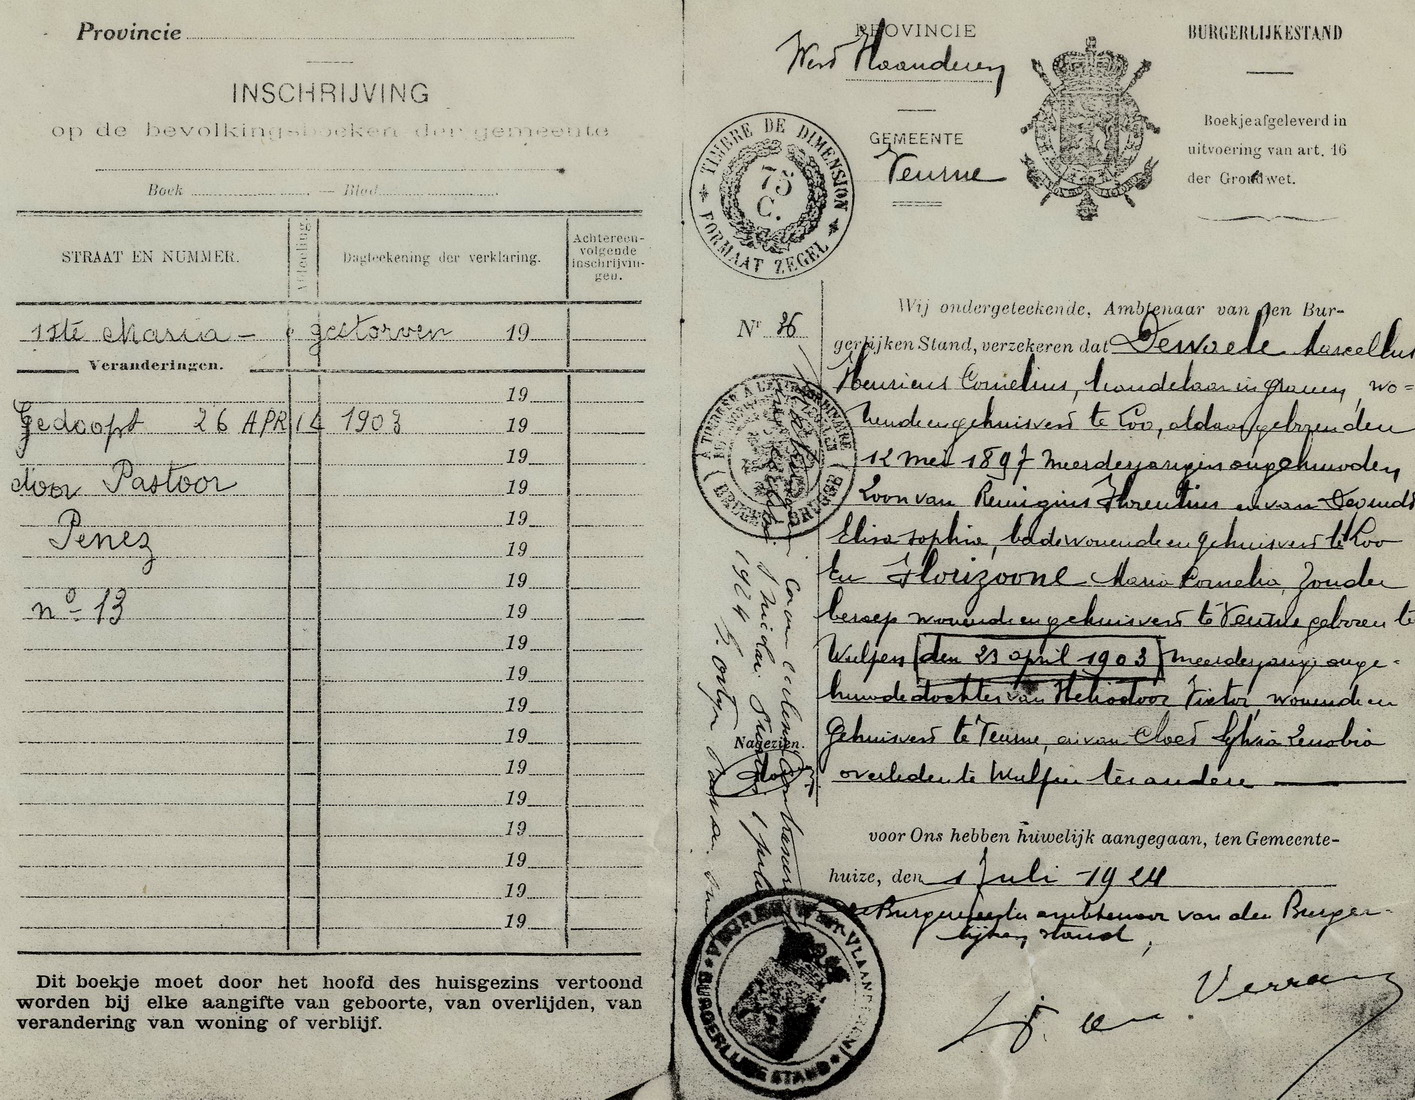 Provincie
INSCHRIJVING
op de bevolkingsboeken der gemeente
Boek — Blad
STRAAT EN NUMMER.
Afdeeling
Dagteekening der verklaring.
Achtereen-
volgende
inschrijvin-
gen.
1ste Maria – gestorven 19
Veranderingen.
19
Gedoopt 26 APR 14 1903 19
19
door Pastoor 19
19
Penez 19
19
nº 13 19
19
19
19
19
19
19
19
19
19
19
Dit boekje moet door het hoofd des huisgezins vertoond
worden bij elke aangifte van geboorte, van overlijden, van
verandering van woning of verblijf.
PROVINCIE
West Vlaanderen
GEMEENTE
Veurne
BURGERLIJKESTAND
Boekje afgeleverd in
uitvoering van art. 16
der Grondwet.
TIMBRE DE DIMENSION
75
C.
FORMAAT ZEGEL
Nr 26
Wij ondergeteekende, Ambtenaar van den Bur-
gerlijken Stand, verzekeren dat Dewaele Marcellus
Henricus Cornelius, handelaar in granen, wo-
nende en gehuisvest te Loo, aldaar geboren den
12 Mei 1897 meerderjarigen ongehuwden
Zoon van Remigius Florentius en van
Elisa Sophia, beide wonende en gehuisvest te Loo
En Florizoone Maria Cornelia, Zonder
beroep wonende en gehuisvest te Veurne geboren te
Wulpen den 23 april 1903 meerderjarige onge-
huwde dochter van Heliodoor Victor, wonende en
Gehuisvest te Veurne, en van Cloet Sylvia Zenobia
overleden te Wulpen ter andere
Nagezien.
voor Ons hebben huwelijk aangegaan, ten Gemeente-
huize, den 1 Juli 1924
De Burgemeester ambtenaar van den Burger-
lijken stand,
VEURNE WEST-VLAANDEREN
BURGERLIJKE STAND
1 juli
1924